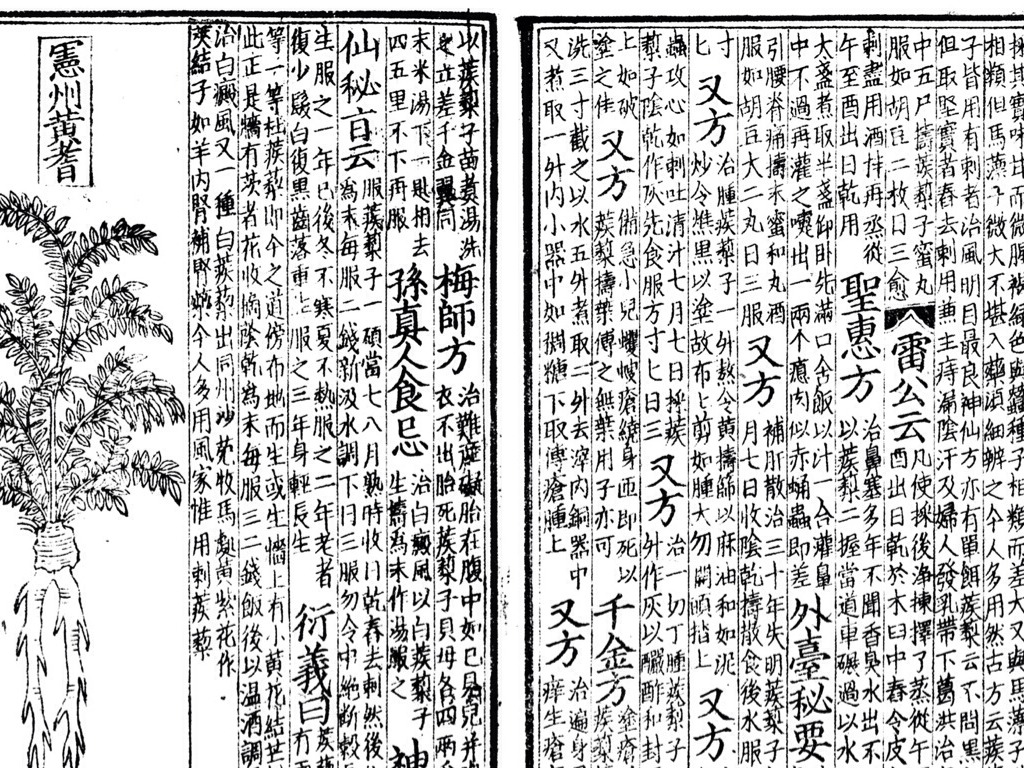 採其實味甘而微腥褐綠色與蠶種子相類而差大又與馬薸子
相類但馬薸子微大不堪入藥須細辨之今人多用然古方云蒺
子皆用有刺者治風明目最良神仙方亦有單餌蒺藜云不問黑
但取堅實者舂去刺用兼主痔漏陰汗及婦人發乳帶下葛洪治
中五尸擣蒺藜子蜜丸
服如胡豆二枚日三愈
雷公云
凡使採後淨揀擇了蒸從午
酉出日乾於木臼中舂令皮
刺盡用酒拌再蒸從
午至酉出日乾用
聖惠方
治鼻塞多年不聞香臭水出不
以蒺藜二握當道車碾過以水
大盞煮取半盞仰臥先滿口含飯以汁一合灌鼻
中不過再灌之嚏出一兩个瘜肉似赤蛹蟲即差
外臺秘要
引腰脊痛擣末蜜和丸酒
服如胡豆大二丸日三服
又方
補肝散治三十年失明蒺藜子
月七日收陰乾擣散食後水服
寸
匕
又方
治腫蒺藜子一升熬令黃擣篩以麻油和如泥
炒令燋黑以塗故布上剪如腫大勿開頭搨上
又方
蟲攻心如刺吐清汁七月七日採蒺
藜子陰乾作灰先食服方寸匕日三
又方
治一切丁腫蒺藜子
升作灰以釅酢和封
上如破
塗之佳
又方
備急小兒蠼螋瘡繞身匝即死以
蒺藜擣葉傅之無葉用子亦可
千金方
塗瘡
蒺藜
洗三寸截之以水五升煮取二升去滓內銅器中
又煮取一升內小器中如稠糖下取傅瘡腫上
又方
治遍身
痒生瘡
以蒺藜子苗煮湯洗
之立差千金翼同
梅師方
治難產礙胎在腹中如已見兒并
衣不出胎死蒺藜子貝母各四兩
末米湯下一匙相去
四五里不下再服
孫真人食忌
治白癜風以白蒺藜子
生擣為末作湯服之
神
仙秘旨云
服蒺藜子一碩當七八月熟時收日乾舂去刺然後
為末每服二錢新汲水調下日三服勿令中絕斷穀
生服之一年已後冬不寒夏不熱服之二年老者
復少髮白復黑齒落重生服之三年身輕長生
衍義曰
蒺藜
有
等一等杜蒺藜即今之道傍布地而生或生牆上有小黃花結芒
此正是牆有茨者花收摘陰乾為末每服三二錢飯後以溫酒調
治白癜風又一種白蒺藜出同州沙苑牧馬處黃紫花作
莢結子如羊內腎補腎藥今人多用風家惟用刺蒺藜
憲州黃耆